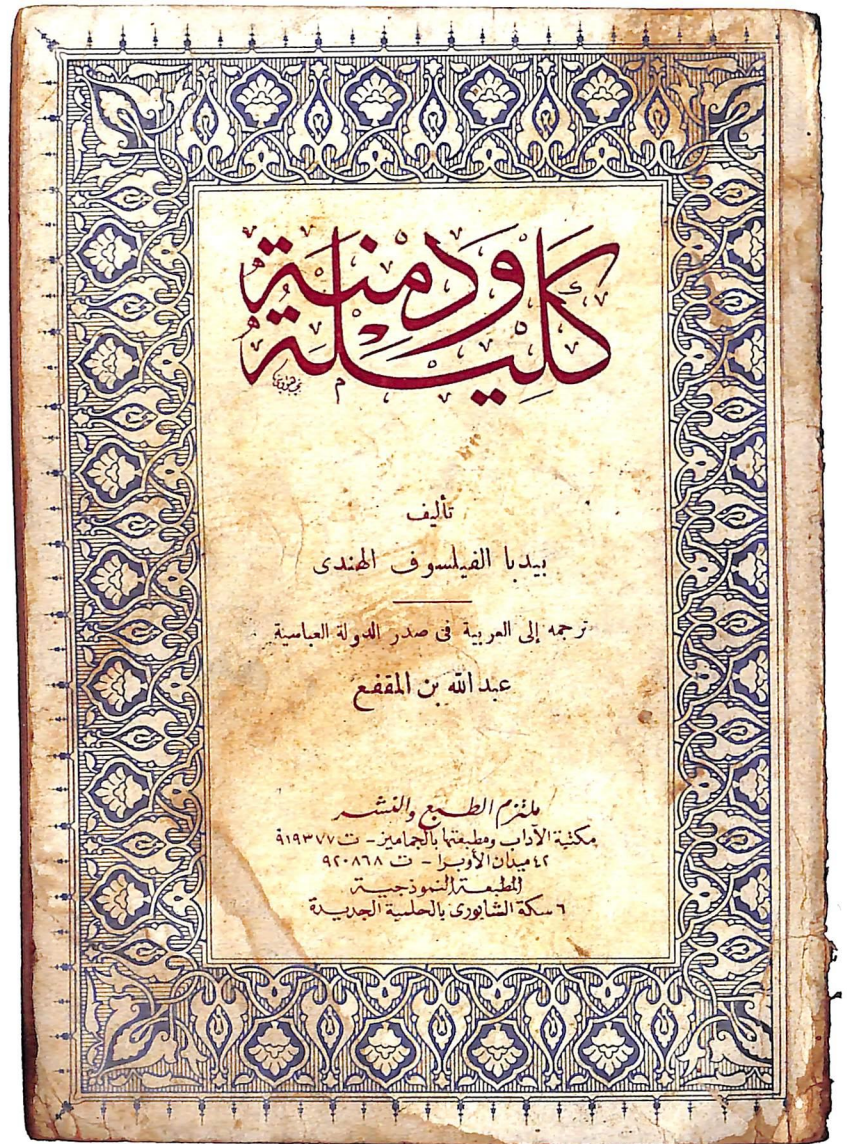 كَلِيلَة وَدِمْنَة
تأليف
بيدبا الفيلسوف الهندى
ترجمه إلى العربية فى صدر الدولة العباسية
عبد الله بن المقفع
ملتزم الطبع والنشر
مكتبة الآداب ومطبعتها بالجماميز - ت ٩١٩٣٧٧
٤٢ ميدان الأوبرا - ت ٩٢٠٨٦٨
المطبعة النموذجية
٦ سكة الشابورى بالحلمية الجديدة